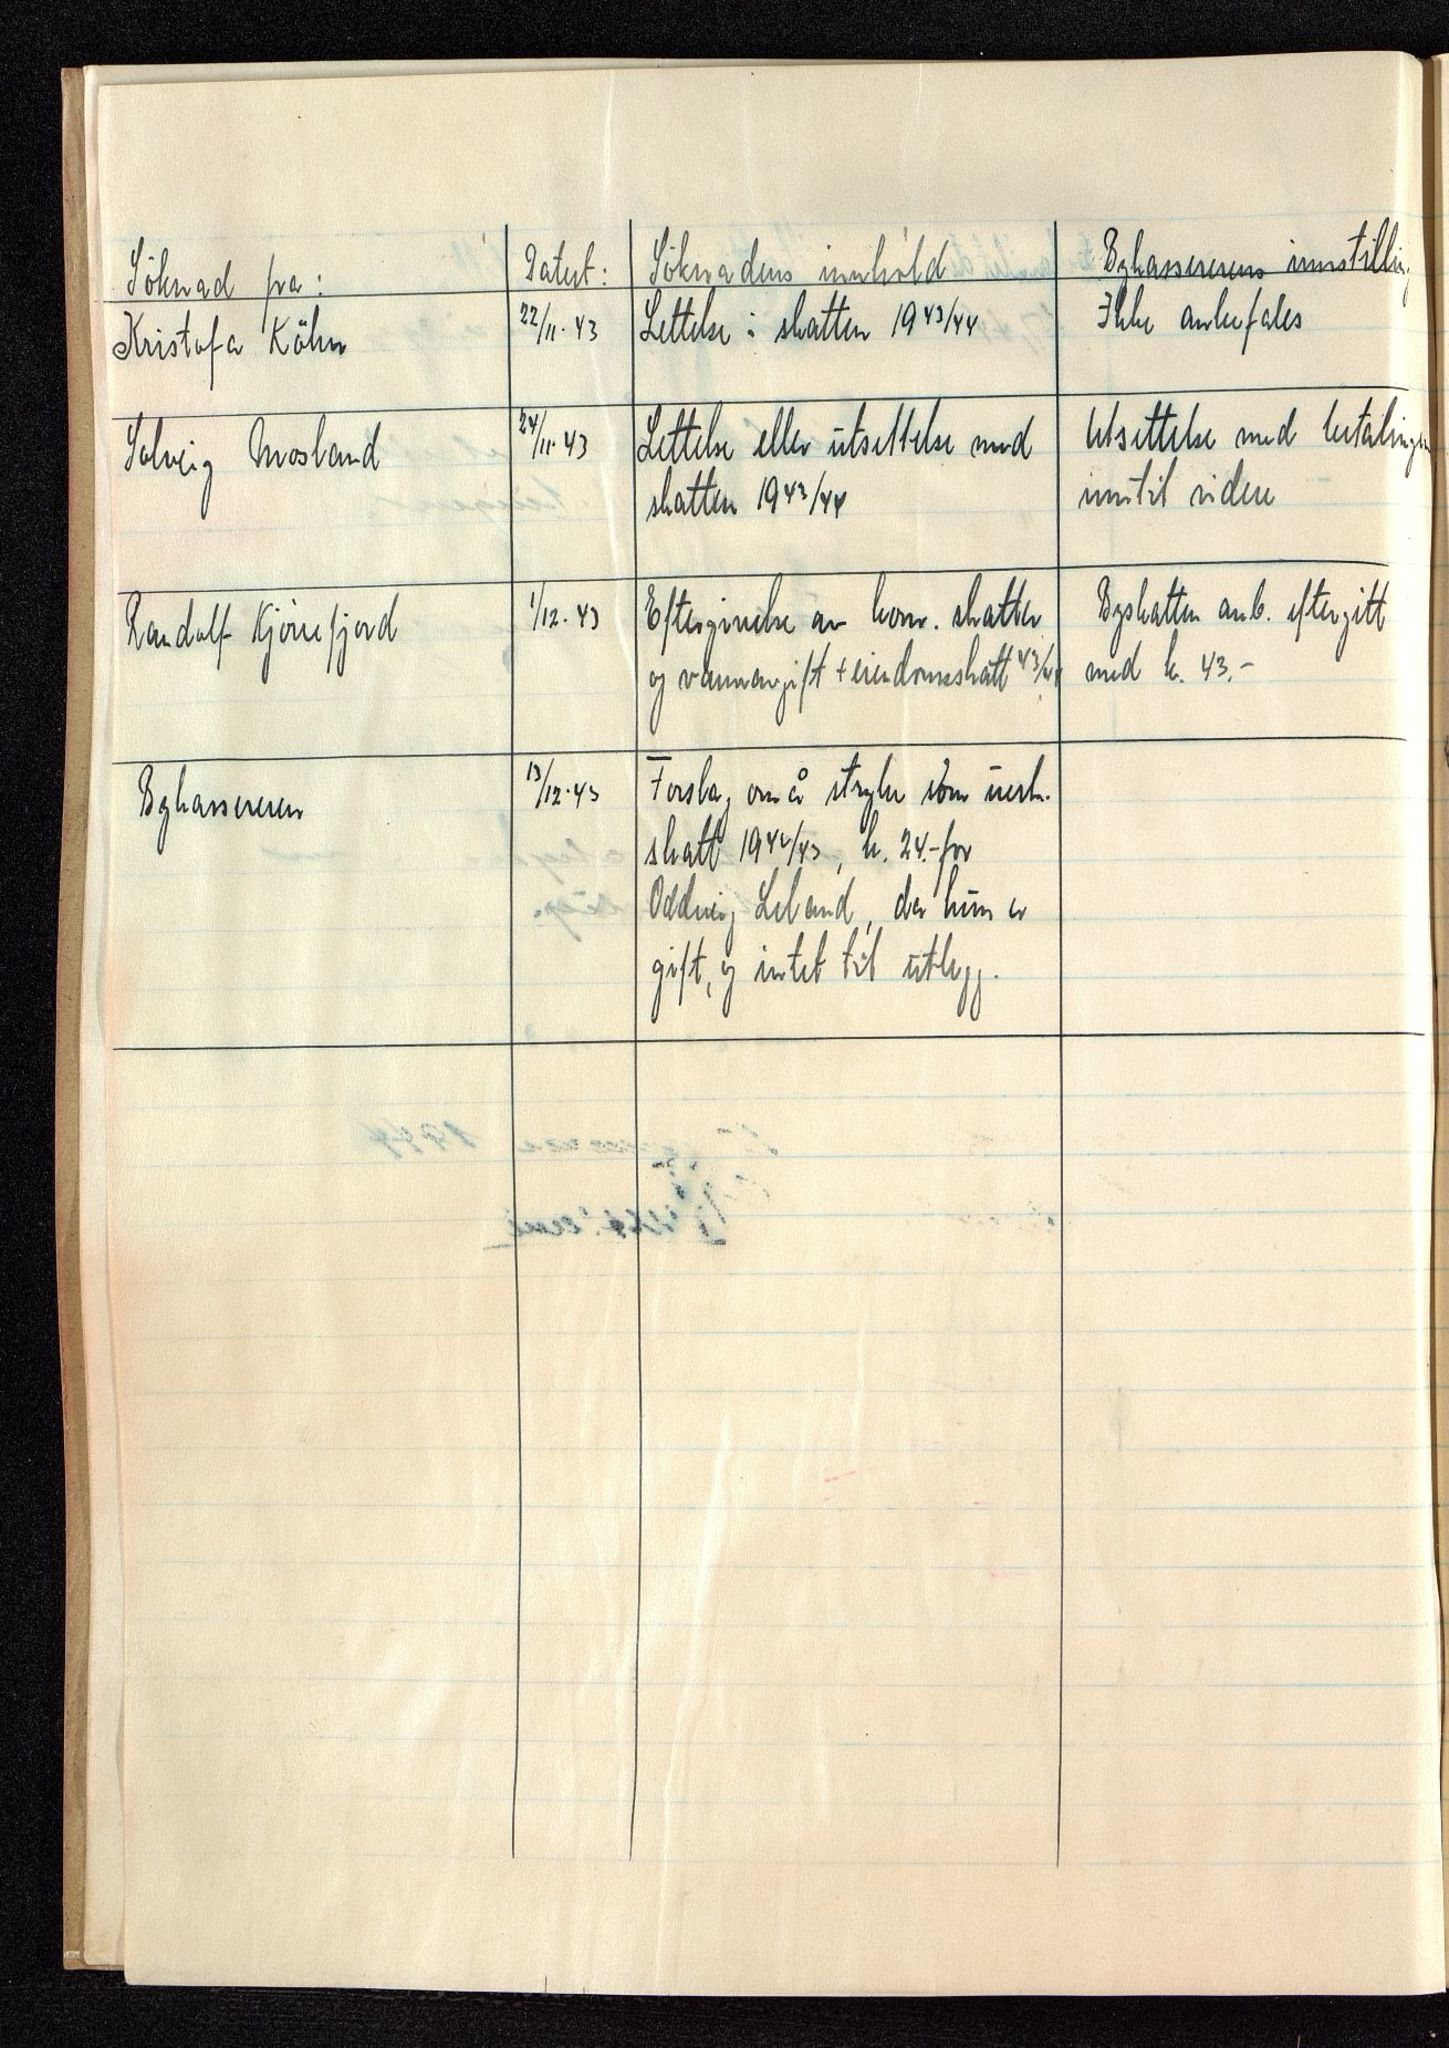 Söknad fra: Datert: Söknadens innhold Bykassererens innstilling
Kristofa Köhn 22/11.43 Lettelse i skatten 1943/44 Ikke anbefales
Solveig Mosland 24/11.43 Lettelse eller utsettelse med Utsettelse med betalingen
skatten 1943/44 inntil videre
Randolf Kjörrefjord 1/12.43 Eftergivelse av kom. skatter Byskatten anb. eftergitt
og vannavgift + eiendomsskatt 43/44 med k. 43.-
Bykassereren 13/12.43 Forslag om å stryke som uerh.
skatt 1942/43, k. 24.- for
Oddveig Leland, da hun er
gift, og intet til utlegg.